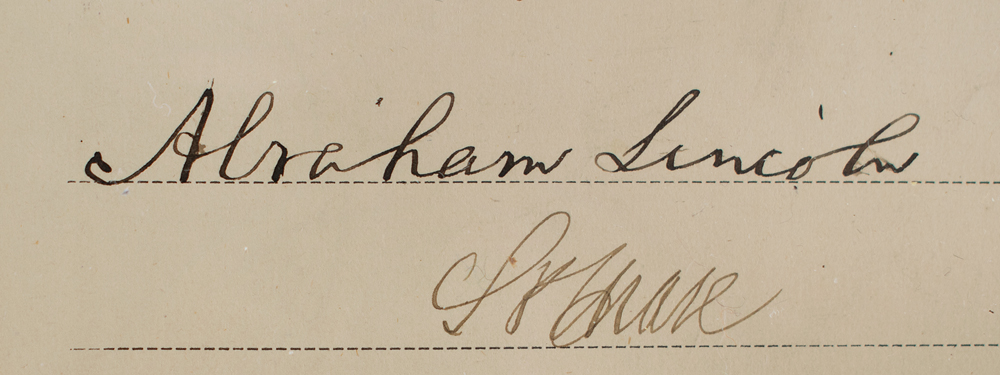 Abraham Lincoln
S P Chase